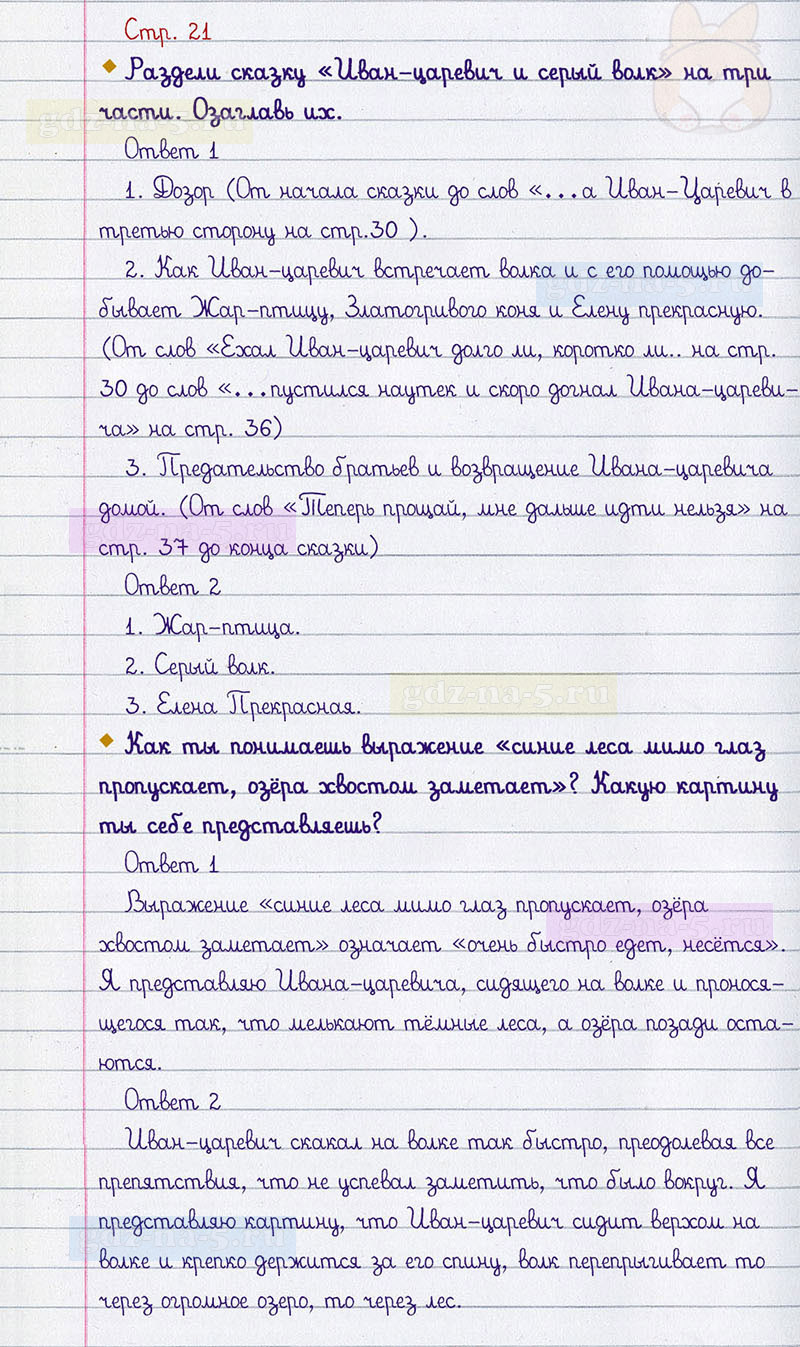 Стр. 21
Раздели сказку «Иван-царевич и серый волк» на три
части. Озаглавь их.
gdz-na-5.ru
Ответ 1
1. Дозор (От начала сказки до слов «...а Иван-Царевич в
третью сторону на стр.30 ).
2. Как Иван-царевич встречает волка и с его помощью до-
gdz-na-5.ru
бывает Жар-птицу, Златогривого коня и Елену прекрасную.
(От слов «Ехал Иван-царевич долго ли, коротко ли.. на стр.
30 до слов «...пустился наутек и скоро догнал Ивана-цареви-
ча» на стр. 36)
3. Предательство братьев и возвращение Ивана-царевича
домой. (От слов «Теперь прощай, мне дальше идти нельзя» на
gdz-na-5.ru
стр. 37 до конца сказки)
Ответ 2
1. Жар-птица.
2. Серый волк.
3. Елена Прекрасная.
gdz-na-5.ru
Как ты понимаешь выражение «синие леса мимо глаз
пропускает, озёра хвостом заметает»? Какую картину
ты себе представляешь?
Ответ 1
Выражение «синие леса мимо глаз пропускает, озёра
gdz-na-5.ru
хвостом заметает» означает «очень быстро едет, несётся».
Я представляю Ивана-царевича, сидящего на волке и пронося-
щегося так, что мелькают тёмные леса, а озёра позади оста-
ются.
Ответ 2
Иван-царевич скакал на волке так быстро, преодолевая все
препятствия, что не успевал заметить, что было вокруг. Я
представляю картину, что Иван-царевич сидит верхом на
gdz-na-5.ru
волке и крепко держится за его спину, волк перепрыгивает то
через огромное озеро, то через лес.